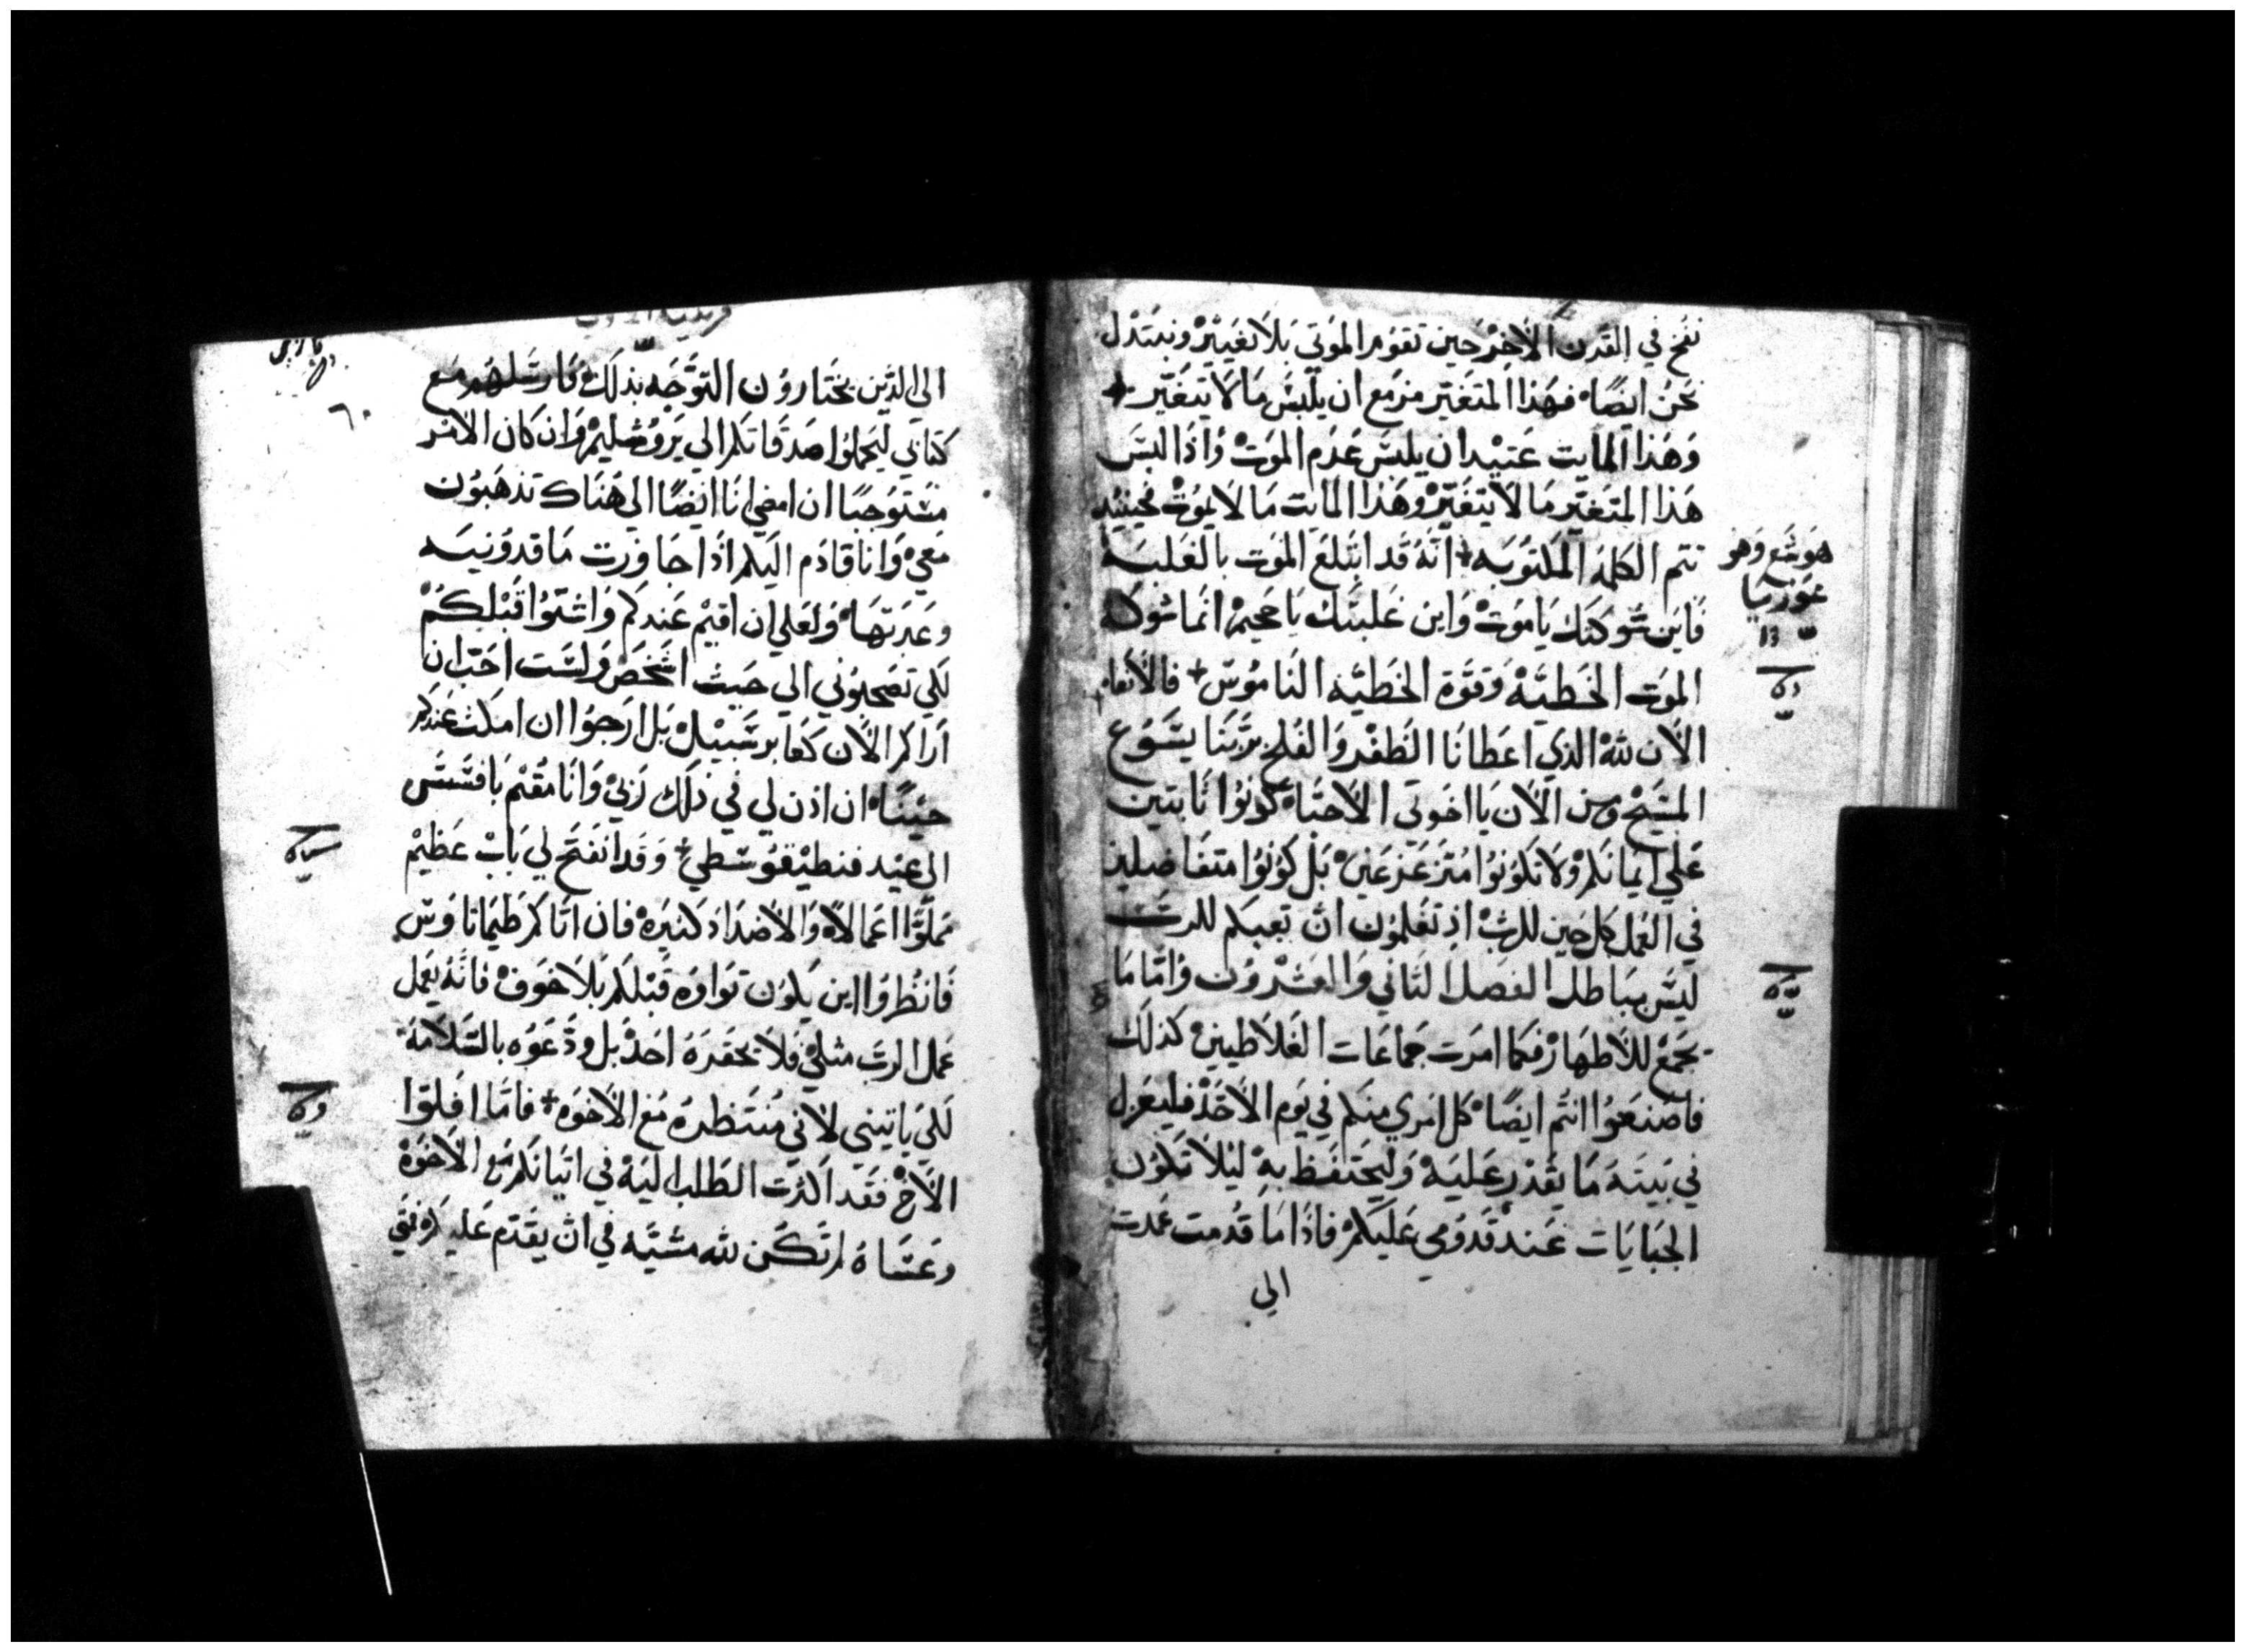 نفخ في القرن الأخير حين تقوم الموتي بلا تغيير ونبتدل
نحن ايضًا فهذا المتغير مزمع ان يلبس ما لا يتغير
وهذا المايت عتيد ان يلبس عدم الموت واذا لبس
هذا المتغير ما لا يتغير وهذا المايت ما لا يموت فحينيد
تتم الكلمة المكتوبه انه قد ابتلع الموت بالغلبه
فاين شوكتك يا موت واين غلبتك يا جحيم انما شوكة
الموت الخطيه وقوة الخطيه الناموس فالانعام
الان لله الذي اعطانا الظفر والفلج بربنا يسوع
المسيح ومن الان يا اخوتى الاحبا كونوا ثابتين
علي ايمانكم ولا تكونوا متزعزعين بل كونوا متفاضلين
في العمل كل حين للرب اذ تعلمون ان تعبكم للرب
ليس بباطل الفصل الثاني والعشرون واما ما
يجمع للاطهار فكما امرت جماعات الغلاطيين كذلك
فاصنعوا انتم ايضًا كل امري منكم في يوم الاحد فليعزل
في بيته ما يقدر عليه وليحتفظ به ليلا تكون
الجبايات عند قدومي عليكم فاذا ما قدمت عمدت
الي
هوشع وهو
عوزيا
الي الذين يختارون التوجه بذلك فارسلهم مع
كتابي ليحملوا صدقاتكم الي يروشليم وان كان الامر
مستوجبًا ان امضي انا ايضًا الي هناك تذهبون
معي وانا قادم اليكم اذا جاوزت ماقدونيه
وعبرتها ولعلي ان اقيم عندكم واشتوا قبلكم
لكي تصحبوني الي حيث اشخص ولست احب ان
اراكم الان كعابر سبيل بل ارجوا ان امكث عندكم
حينًا ان اذن لي في ذلك ربي وانا مقيم بافسس
الى عيد فنطيقوسطي وقد انفتح لي باب عظيم
مملوا اعمالا والاضداد كثيره فان اتاكم طيماثاوس
فانظروا اين يكون تواوه قبلكم بلا خوف فانه يعمل
عمل الرب مثلي فلا يحقره احد بل ودعوه بالسلامة
لكي ياتيني لاني منتظره مع الاخوه فاما افلوا
الاخ فقد اكثرت الطلب اليه في اتيانكم مع الاخوه
وعساه لم تكن لله مشيه في ان يقدم عليكم فمتي
٦٠